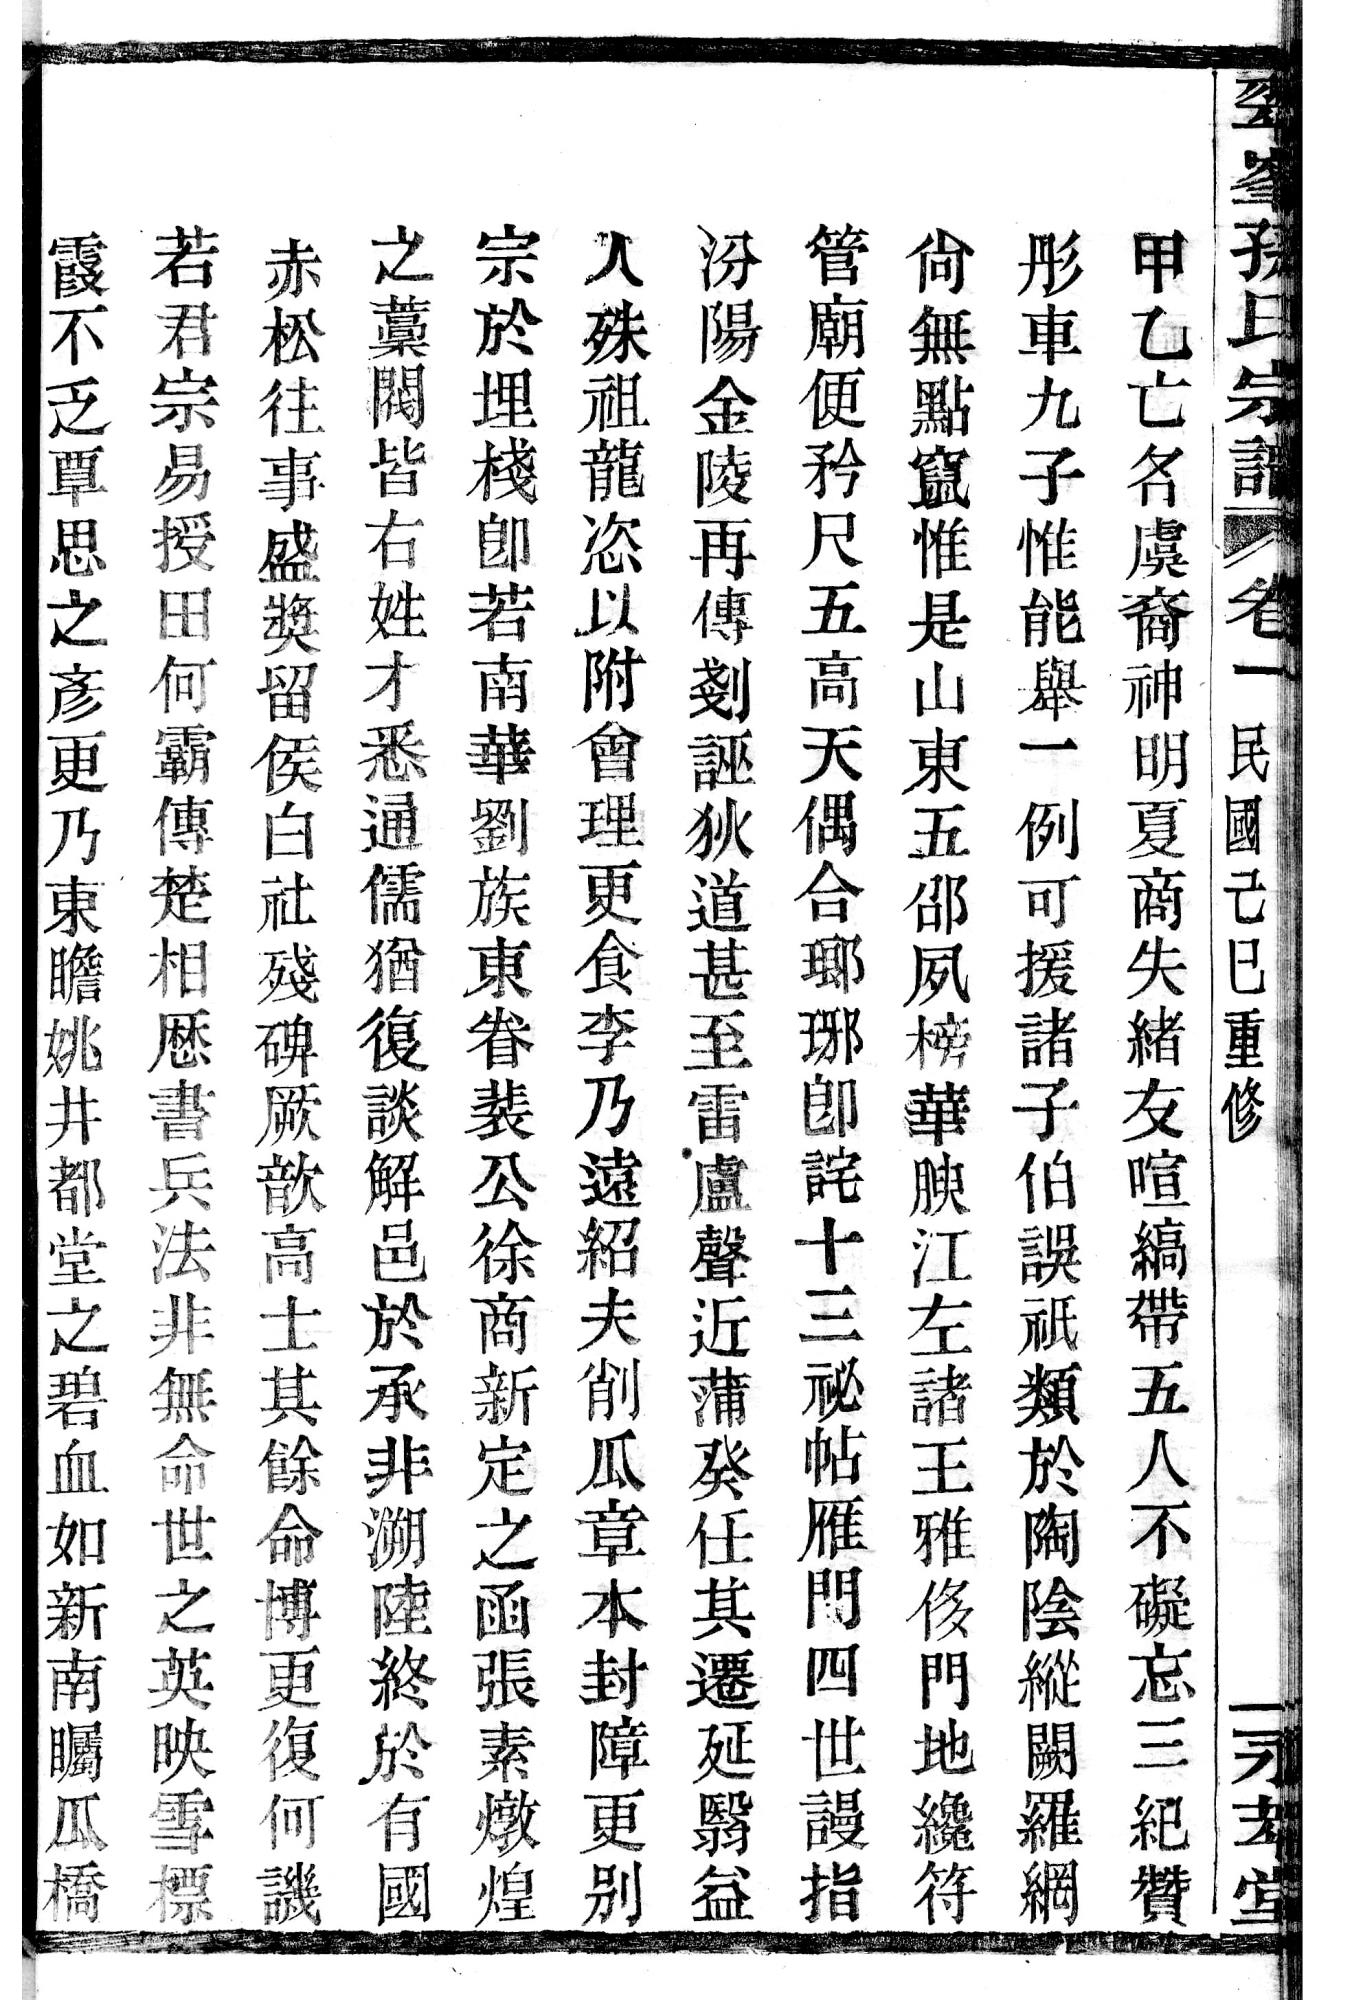 翠峯孫氏宗譜 卷一 民國己巳重修 一 永孝堂
甲乙亡名虞裔神明夏商失緒友喧縞帶五人不礙忘三紀贊
彤車九子惟能舉一例可援諸子伯誤祇類於陶陰縱闕羅網
尙無點竄惟是山東五邵夙榜華腴江左諸王雅侈門地纔符
管廟便矜尺五高天偶合瑯琊卽詫十三祕帖雁門四世謾指
汾陽金陵再傳剗誣狄道甚至雷盧聲近蒲癸任其遷延翳益
人殊祖龍恣以附會理更食李乃遠紹夫削瓜章本封障更別
宗於埋棧卽若南華劉族東眷裴公徐商新定之函張素燉煌
之藁閥皆右姓才悉通儒猶復談解邑於承非溯陸終於有國
赤松往事盛獎留侯白社殘碑厥歆高士其餘命博更復何譏
若君宗易授田何霸傳楚相厯書兵法非無命世之英映雪標
霞不乏覃思之彥更乃東瞻姚井都堂之碧血如新南矚瓜橋